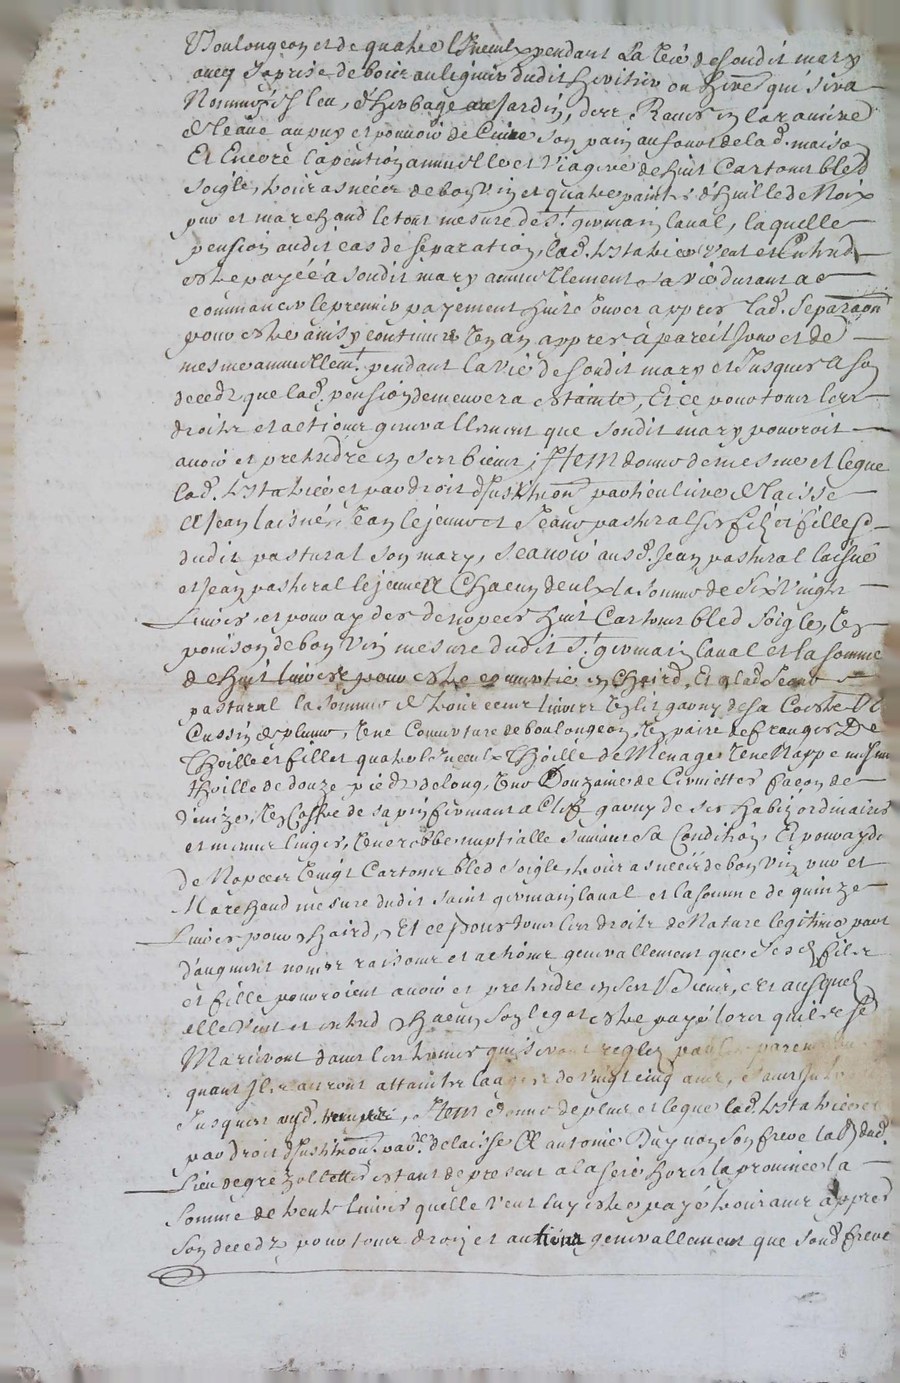 Boulongeon et de quatre linceulx pendant la vie de sondit mary
avecq la prise de bois au legnier dudit heritier ou hire qui sera
Nommé Isleu, d'herbage au Jardin, deux Raves en la raviere
et l'eaue au puy et pouvoir de Cuire son pain au four de lad. maison
Et Encore la pention annuelle et viagere de huit Cartons bled
soigle, trois asnées de bon vin et quatre paints d'huille de Noix
pur et marchand le tout mesure de St. germain laval, laquelle
pension audit cas de separation, lad. testatrice veut et Entend
estre payéé à sondit mary annuellement sa vie durant a
commancer le premier payement huit Jours appres lad. separaon
pour estre ainsy continué Un an appres à pareil Jour et de
mesme annuellemt. pendant la vie de sondit mary et Jusques A son
deceds que lad. pension demeurera estainte, Et ce pour tous les
droits et actions generallement que sondit mary pouvroit
avoir et prethdre en ses biens ; Item donne de mesme et legue
lad. testatrice et par droit d'Institution particuliere delaisse
A Jean laisné, Jean le jeune et Jeane pastural ses filz et fille
dudit pastural son mary, scavoir ausd. Jean pastural laisné
et Jean pastural le jeune A Chacun deulx la somme de six vingts
Livres, et pour aydes de nopces huit Cartons bled soigle, Un
poinson de bon vin mesure dudit St. germain laval et la somme
de huit livres pour estre convertie en Chaird, Et a lad Jeane
pastural la somme de trois cens livres Un lit garny de sa Coistre
Cussin de plume, Une Couverture de boulongeon, Un paire de franges De
Thoille et fillet quatre linceulx Thoille de Menage Une Nappe mesme
thoille de douze pieds de long, Une Douzaine de Serviettes façon de
Venize, Un Coffre de sapin fermant a Clef garny de ses habitz ordinaires
et menus linges, Une robbe nuptialle suivant sa Condition, Et pour ayde
de Nopces Vingt Cartons bled soigle, trois asnées de bon vin pur et
Marchand mesure dudit saint germain laval et la somme de quinze
Livres pour Chaird, Et ce pour tous les droits de Nature legitime part
d'augment noms raisons et actions generallement que sesd. filz
et fille pouvroient avoir et prethdre en ses Biens, et ausquels
elle veut et entend Chacun son legat estre payé lors quils se
Marieront dans les termes qui seront reglez par leurs parens
quant Ils auront attaint laage de vingt cinq ans,
Jusques aud. temps, Item donne de plus et legue lad. testatrice
par droit d'Institution par.re delaisse A antoine Dupuy son frere
Lieu de grezollettes estant de present a la foire hors la province la
somme de trente livres quelle veut luy estre payé trois ans appres
son deceds pour tous droitz et actions generallement que sond frere